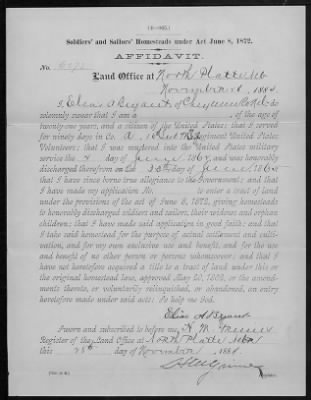 (4-065.)
Soldiers' and Sailors' Homesteads under Act June 8, 1872.
AFFIDAVIT.
No.
Land Office at North Platte Neb
November 1884.
I, Elias A Bryant of Cheyenne Co Neb do
solemnly swear that I am a , of the age of
twenty-one years, and a citizen of the United States; that I served
for ninety days in Co. A, Regiment United States
Volunteers; that I was mustered into the United States military
service the 4 day of June, 1864, and was honorably
discharged therefrom on the 30th day of June, 1865
that I have since borne true allegiance to the Government; and that
I have made my application No. to enter a tract of land
under the provisions of the act of June 8, 1872, giving homesteads
to honorably discharged soldiers and sailors, their widows and orphan
children; that I have made said application in good faith; and that
I take said homestead for the purpose of actual settlement and culti-
vation, and for my own exclusive use and benefit, and for the use
and benefit of no other person or persons whomsoever; and that I
have not heretofore acquired a title to a tract of land under this or
the original homestead law, approved May 20, 1862, or the amend-
ments thereto, or voluntarily relinquished, or abandoned, an entry
heretofore made under said acts: So help me God.
Elias A Bryant
Sworn and subscribed to before me,
Register of the Land Office at North Platte Neb
this 28th day of November 1884.
Register.